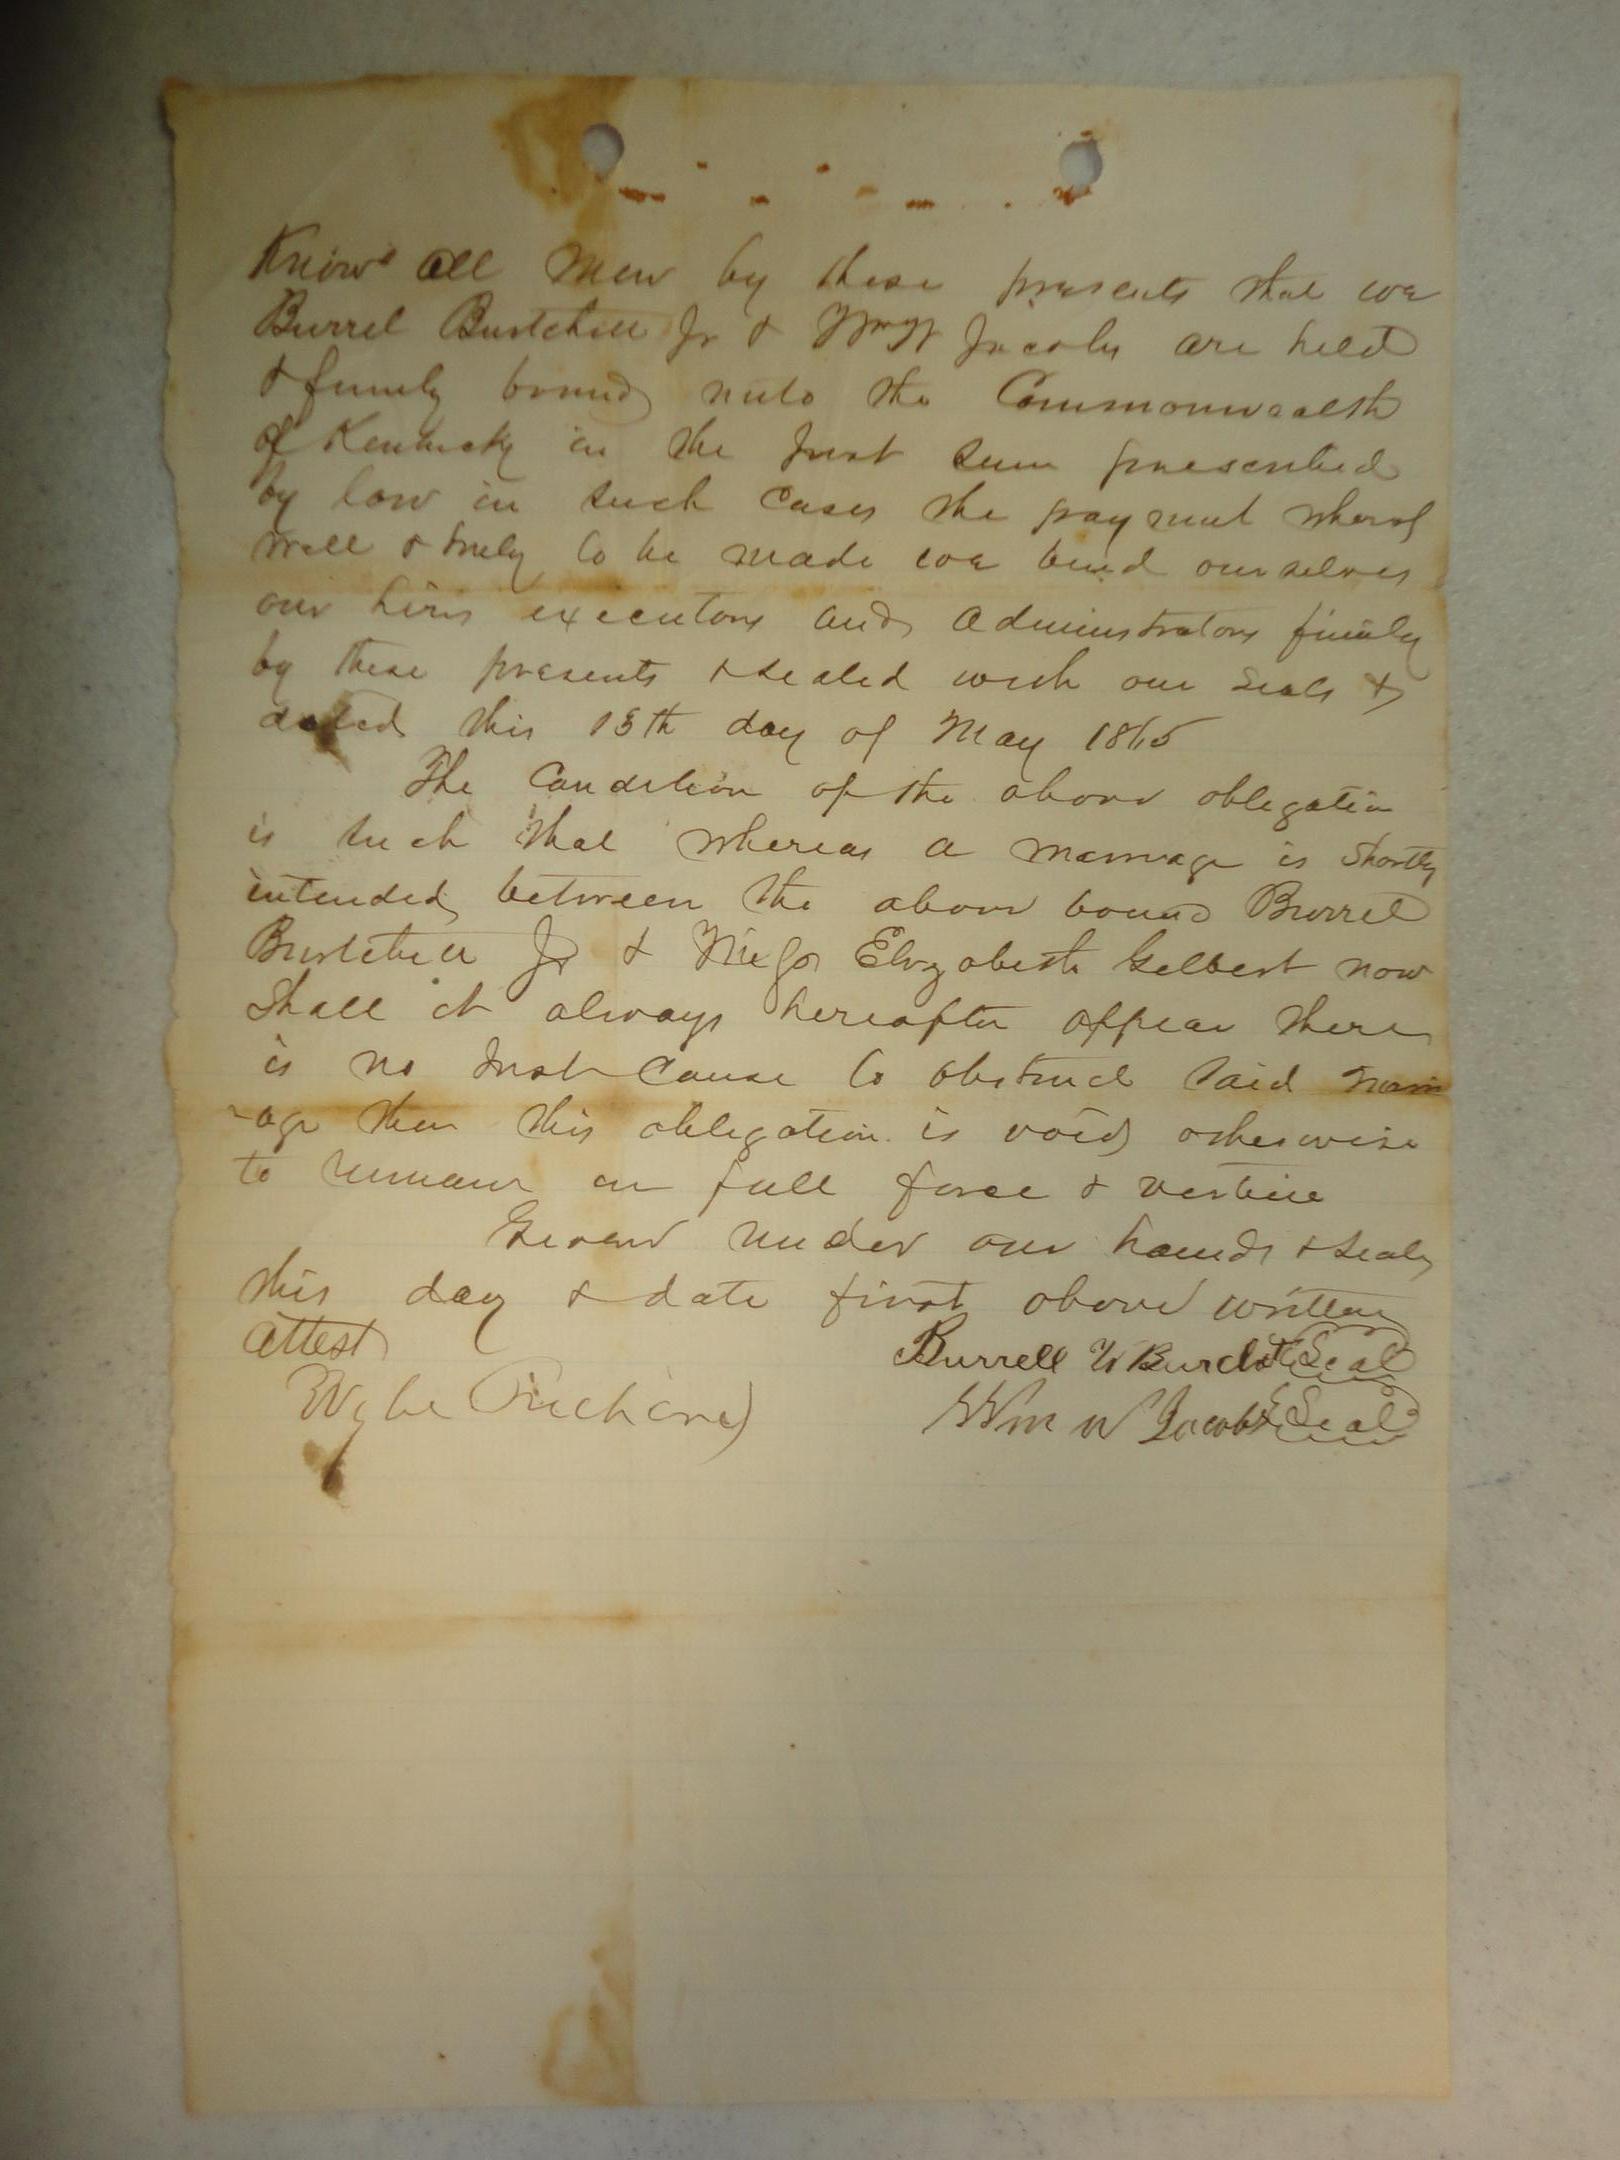 Know all Men by these presents that we
Burrel Burtchell Jr & Wm W Jacobs are held
& firmly bound unto the Commonwealth
of Kentucky in the Just sum prescribed
by law in such cases the payment whereof
well & truly to be made we bind ourselves
our heirs executors and administrators firmly
by these presents & sealed with our seals &
dated this 13th day of May 1865
The Condition of the above obligation
is such that whereas a marriage is shortly
intended between the above bound Burrel
Burtchell Jr & Elizabeth Gilbert now
shall it always hereafter appear there
is no Just Cause to obstruct said marri
-age then this obligation is void otherwise
to remain in full force & vertue
Given under our hands & seals
this day & date first above written
Attest
Burrell W Seal
Wm W Jacobs Seal